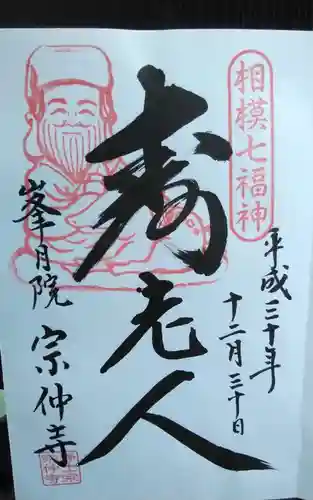 相模七福神
平成三十年
十二月三十日
寿老人
峯月院
宗仲寺